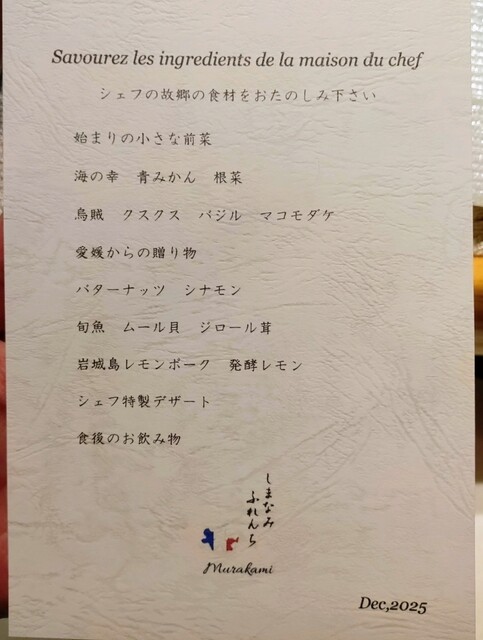 Savourez les ingredients de la maison du chef
シェフの故郷の食材をおたのしみ下さい
始まりの小さな前菜
海の幸　青みかん　根菜
烏賊　クスクス　バジル　マコモダケ
愛媛からの贈り物
バターナッツ　シナモン
旬魚　ムール貝　ジロール茸
岩城島レモンポーク　発酵レモン
シェフ特製デザート
食後のお飲み物
しまなみ
ふれんち
Murakami
Dec,2025